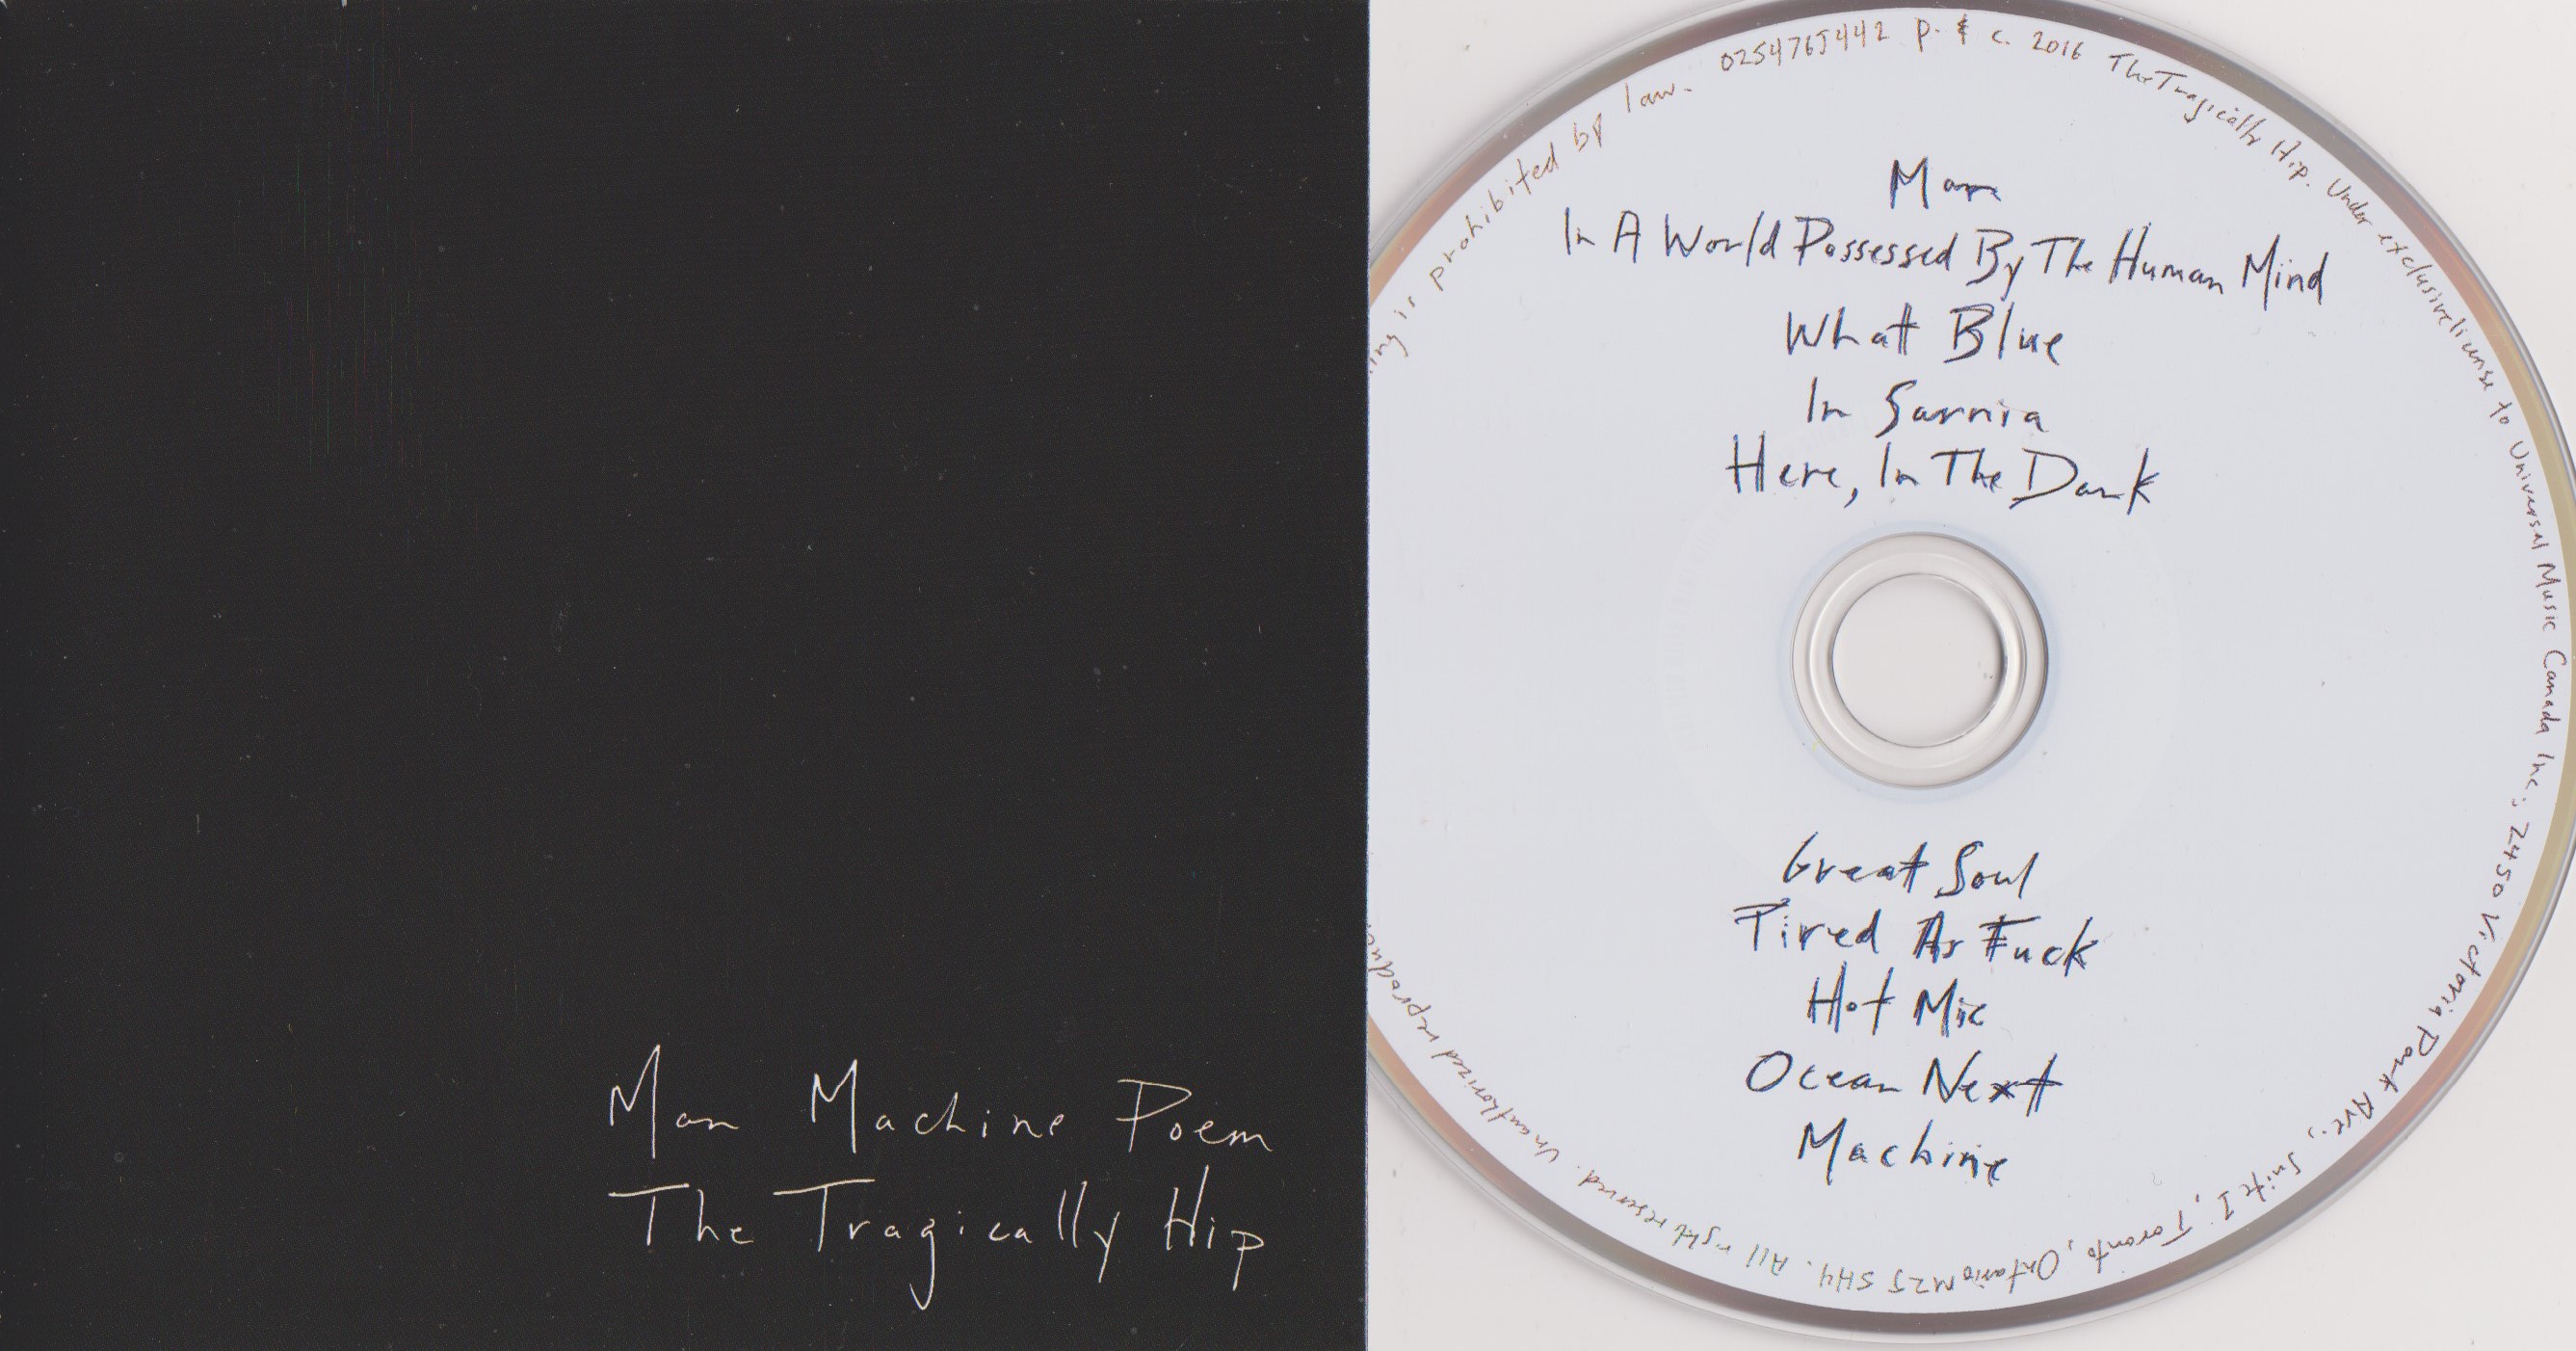 Man Machine Poem
The Tragically Hip
Man
In A World Possessed By The Human Mind
What Blue
In Sarnia
Here, In The Dark
Great Soul
Tired As Fuck
Hot Mic
Ocean Next
Machine
0254765442 p. & c. 2016 The Tragically Hip. Under exclusive license to Universal Music Canada Inc., 2450 Victoria Park Ave., Suite 1, Toronto, Ontario M2J 5H4. All right reserved. Unauthorized reproduc
ing is prohibited by law.